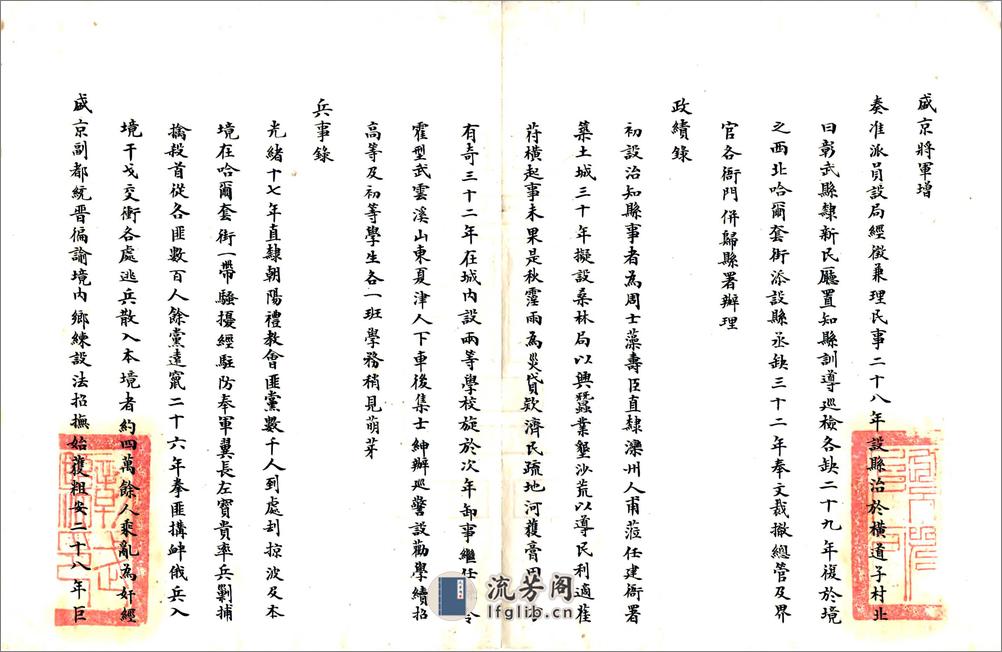 盛京將軍增
奏准派員設局經徵兼理民事二十八年設縣治於橫道子村北
曰彰武縣隸新民廳置知縣訓導巡檢各缺二十九年復於境
之西北哈爾套街添設縣丞缺三十二年奉文裁撤總管及界
官各衙門併歸縣署辦理
政績錄
初設治知縣事者為周士藻壽臣直隸灤州人甫蒞任建衙署
築土城三十年擬設桑林局以興蠶業墾沙荒以導民利適萑
苻橫起事未果是秋霪雨為災貸欵濟民疏地河穫膏田
有奇三十二年在城內設兩等學校旋於次年卸事繼任 令
霍型武雲溪山東夏津人下車後集士紳辦巡警設勸學續招
高等及初等學生各一班學務稍見萌芽
兵事錄
光緒十七年直隸朝陽禮教會匪黨數千人到處刦掠波及本
境在哈爾套街一帶騷擾經駐防奉軍翼長左寶貴率兵剿捕
擒殺首從各匪數百人餘黨遠竄二十六年拳匪搆衅俄兵入
境干戈交衝各處逃兵散入本境者約四萬餘人乘亂為奸經
盛京副都統晋徧諭境內鄉練設法招撫始獲粗安二十八年巨
流芳閣
lfglib.com